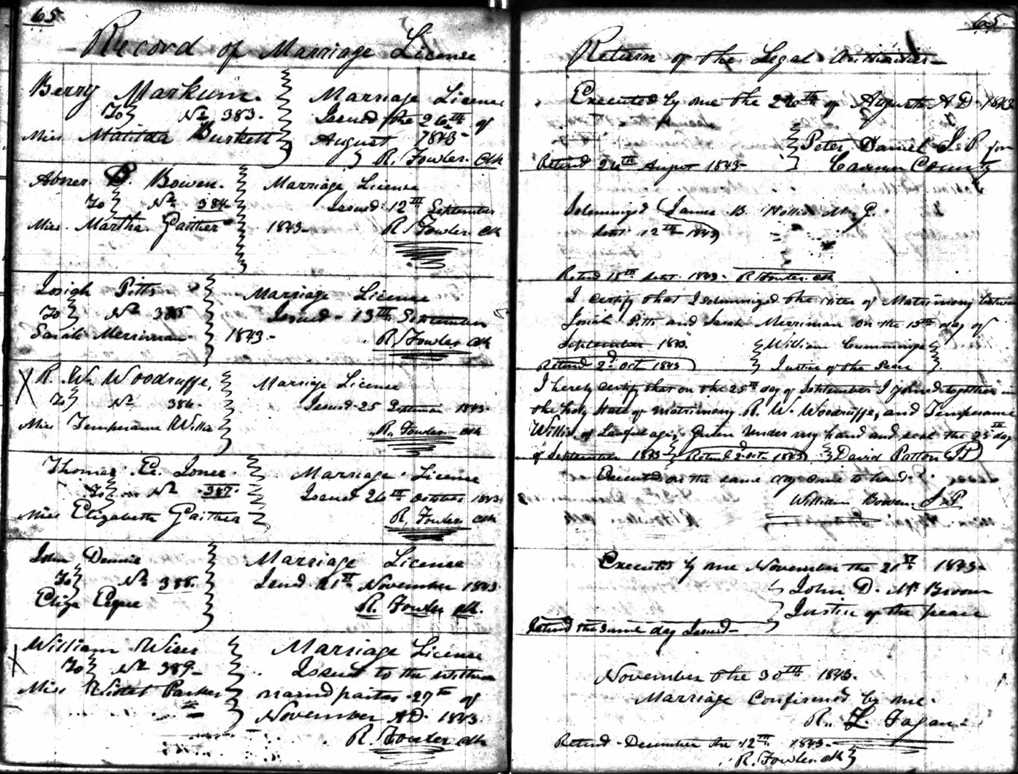 65
Record of Marriage License
Berry Markum.
To No 383.
Miss Matilda Burkett
Marriage License
Issued the 26th of
August 1843-
R. Fowler Clk
Abner B. Bowen.
To No 384
Miss Martha Gaither
Marriage License
Issued 12th September
1843- R. Fowler Clk
Josiah Pitts
To No 385
Sarah Merriman
Marriage License
Issued 13th September
1843- R. Fowler Clk
R. W. Woodruffe,
To No 386-
Miss Temperance Willis
Marriage License
Issued 25 September 1843-
R. Fowler Clk
Thomas E. Jones.
To No 387-
Miss Elizabeth Gaither
Marriage License
Issued 26th October 1843
R. Fowler Clk
John Dennis
To No 388.
Eliza
Marriage License
Issued 21st November 1843
R. Fowler Clk.
William Wiser
To No 389-
Miss Parker
Marriage License
Issued to the within
named parties 27th of
November AD. 1843
R. Fowler Clk
65
Return of the Legal
Executed by me the 26th of August A.D. 1843
Peter Daniel J.P for
Cannon County
Retend 26th August 1843-
Solemnized James B. M. G.
Sept 12th 1843
Retend 18th Sept. 1843- R Fowler Clk
I certify that I solemnized the rites of Matrimony between
Josiah Pitts and Sarah Merriman on the 13th day of
September 1843. William Cummings
Retend 2d Oct 1843 Justice of the Peace
I hereby certify that on the 25th day of September I joined together in
the holy state of matrimony R. W. Woodruffe, and Temperance
Willis of Lawful age, Given under my hand and seal the 25th day
of September 1843 Retend 2 Oct 1843 David Patton JP
Executed on the same day come to hand.
William Bowen J.P
Executed by me November the 21st 1843-
John D. McBroom
Justice of the peace
Retend the same day Issued-
November the 30th 1843.
Marriage Confirmed by me-
R. L. Fagan-
Retend December the 12th 1843-
R. Fowler clk